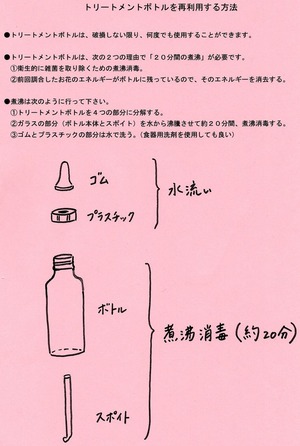 トリートメントボトルを再利用する方法
●トリートメントボトルは、破損しない限り、何度でも使用することができます。
●トリートメントボトルは、次の2つの理由で「20分間の煮沸」が必要です。
①衛生的に雑菌を取り除くための煮沸消毒。
②前回調合したお花のエネルギーがボトルに残っているので、そのエネルギーを消去する。
●煮沸は次のように行って下さい。
①トリートメントボトルを4つの部分に分解する。
②ガラスの部分(ボトル本体とスポイト)を水から沸騰させて約20分間、煮沸消毒する。
③ゴムとプラスチックの部分は水で洗う。(食器用洗剤を使用しても良い)
ゴム
水流い
プラスチック
ボトル
煮沸消毒(約20分)
スポイト